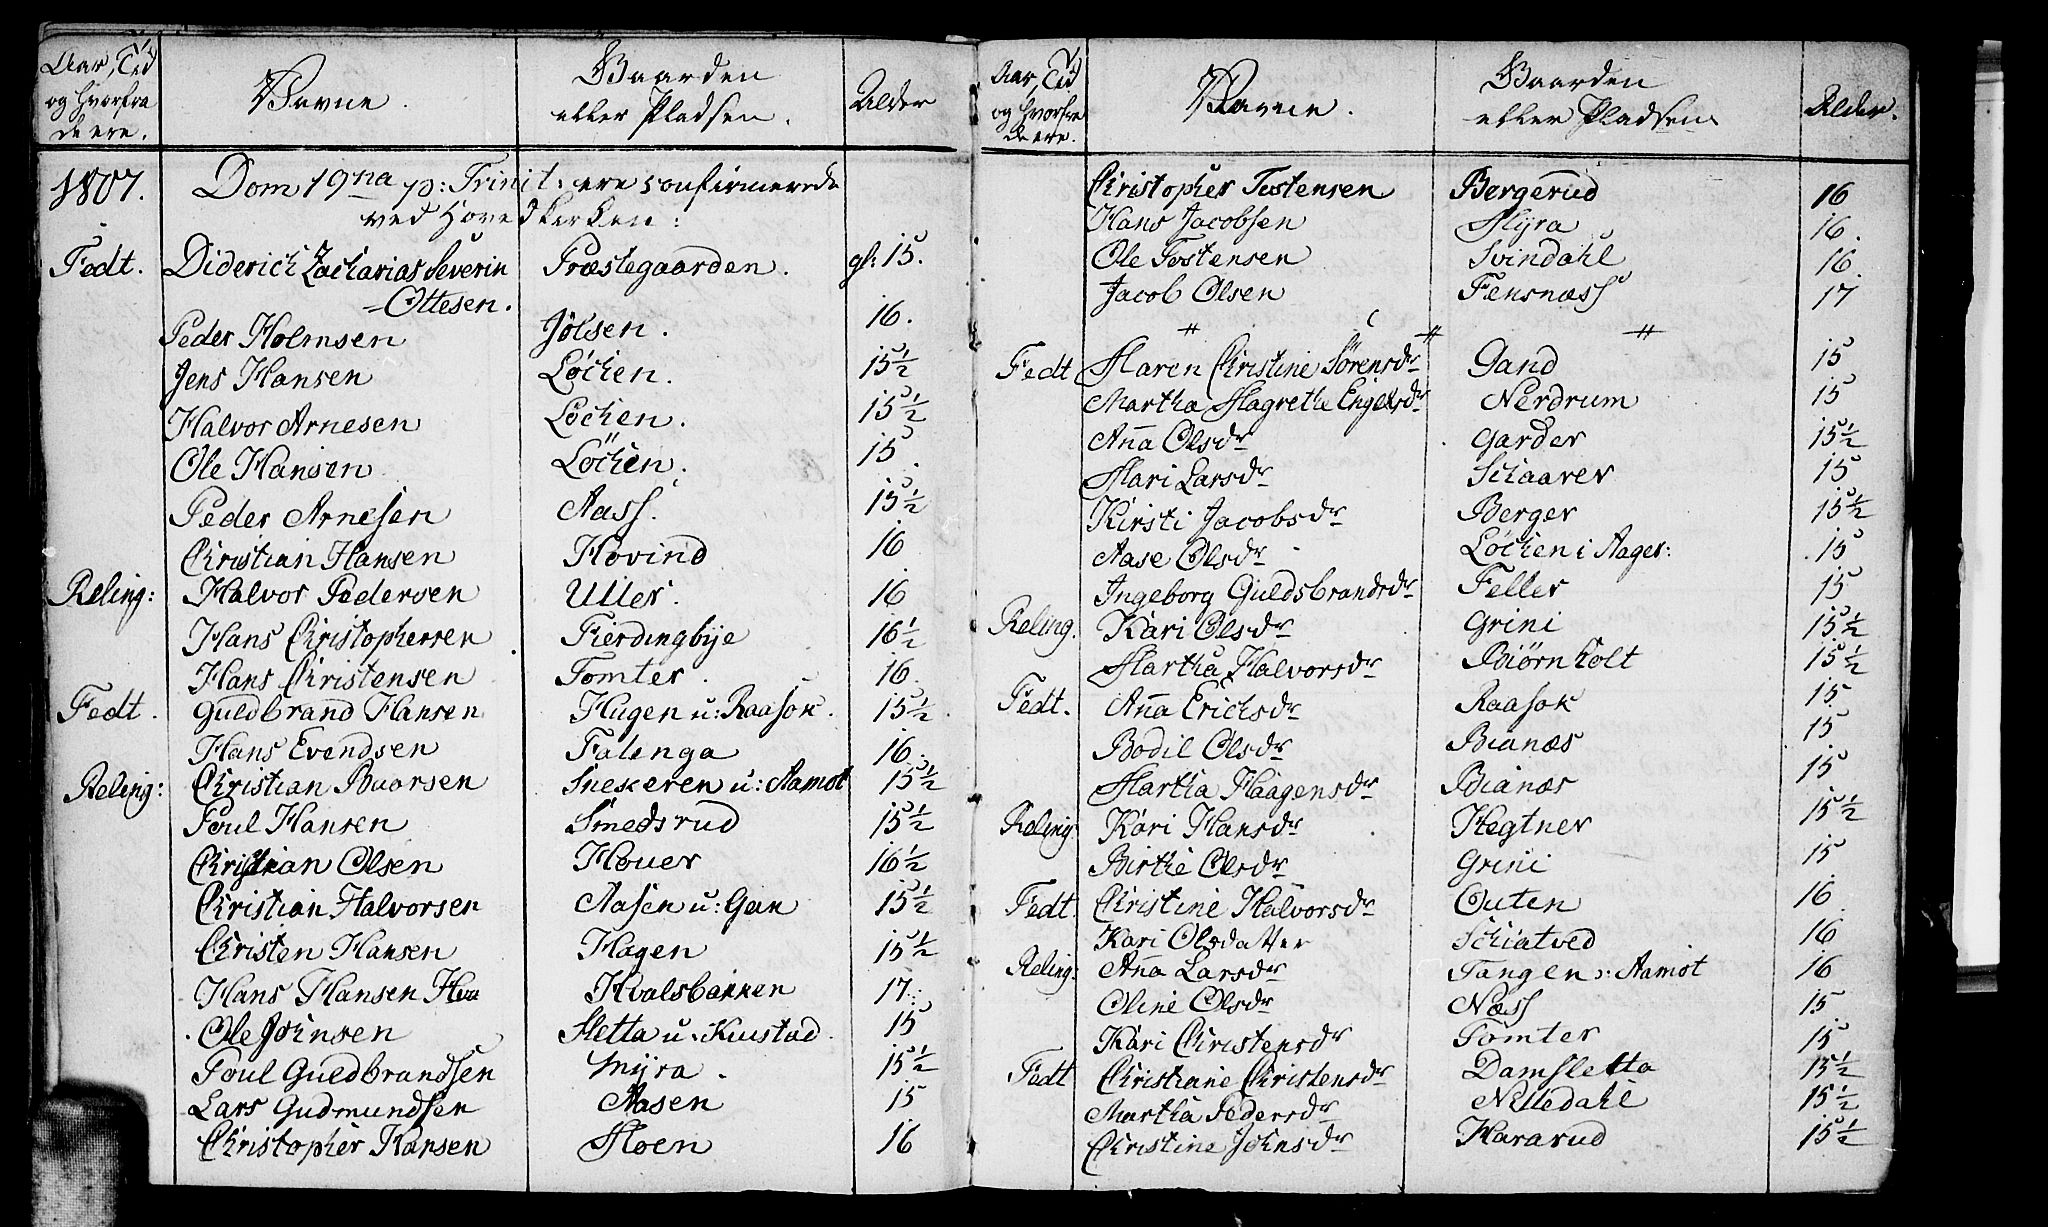 Aar, Tid og hvorfra de ere. Navne. Gaarden eller Pladsen. Alder
1807. Dom 19na p: Trinit: ere confirmerede
ved Hovedkirken:
Fedt. Diderich Zacharias Severin Præstegaarden. gl: 15.
=Ottesen.
Peder Holmsen Jølsen. 16.
Jens Hansen Løchen. 15½
Halvor Arnesen Løchen. 15½
Ole Hansen Løchen. 15.
Peder Arnesen Aass. 15½
Christian Hansen Hovind 16
Reling: Halvor Pedersen Uller. 16
Hans Christophersen Fierdingbÿe 16½
Hans Christensen Tomter. 16.
Fedt. Guldbrand Hansen Hagen u: Raasok. 15½
Hans Evendsen Falenga 16.
Reling: Christian Baarsen Snekeren u: Aamot 15½
Poul Hansen Smedsrud 15½
Christian Olsen Houer 16½
Christian Halvorsen Aasen u: Gan 15½
Christen Hansen Hagen 15½
Hans Hansen Kvalsbakken 17.
Ole Johnsen Sletta u: 15
Poul Guldbrandsen Mÿra. 15½
Lars Gudmundsen Aasen 15
Christopher Hansen Moen 16
Aar, Tid og hvorfra de ere. Navne. Gaarden eller Pladsen Alder.
Christopher Tostensen Bergerud 16
Hans Jacobsen Mÿra 16.
Ole Tostensen Svindahl 16.
Jacob Olsen Fensnæss 17
Fedt Maren Christine Sörensdr Gand 15
Martha Magrethe Engelsdr Nerdrum 15
Anna Olsdr Garder 15½
Mari Larsdr Schaarer 15
Kirsti Jacobsdr Berger 15½
Aase Olsdr Løchen i Aager: 15
Ingeborg Guldsbrandsdr Feller 15
Reling. Kari Olsdr Grini 15½
Martha Halvorsdr Biørnholt 15½
Fedt. Anna Erichsdr Raasok 15
Bodil Olsdr Bianæs 15
Martha Haagensdr Bianæs 15
Reling Kari Hansdr Hegtner 15½
Birthe Olsdr Grini 15
Fedt. Christine Halvorsdr Outen 16
Kari Olsdatter Schiatved 16
Reling: Anna Larsdr Tangen u: Aamot 16
Oline Olsdr Næss 15
Kari Christensdr Tomter 15
Fedt Christiane Christensdr Damsletta 15½
Martha Pedersdr Nittedahl 15½
Christine Johnsdr Hararud 15½